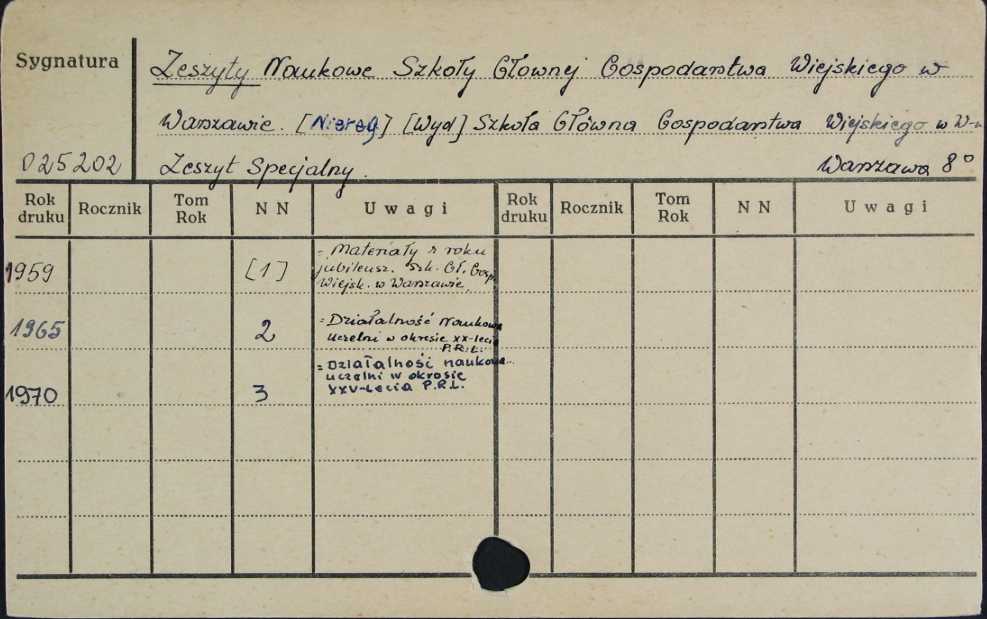 Sygnatura
Zeszyty Naukowe Szkoły Głownej Gospodarstwa Wiejskiego w
Warszawie. [Niereg] [Wyd] Szkoła Główna Gospodarstwa Wiejskiego w W-w
025202 Zeszyt Specjalny. Warszawa 8°
Rok druku Rocznik Tom Rok N N Uwagi Rok druku Rocznik Tom Rok N N Uwagi
1959 [1] = Materiały z roku
jubileusz. Szk. Gł. Gosp.
Wiejsk. w Warszawie
1965 2 = Działalność Naukowa
uczelni w okresie xx-lecia
P.R.L.
1970 3 = Działalność naukowa
uczelni w okresie
XXV-Lecia P.R.L.